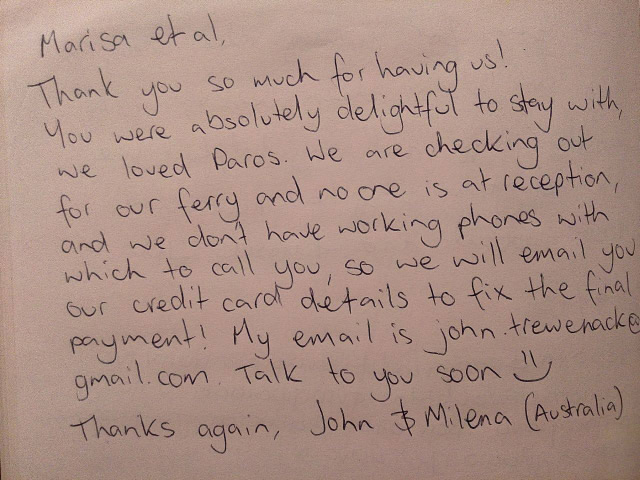 Marisa et al,
Thank you so much for having us!
You were absolutely delightful to stay with,
we loved Paros. We are checking out
for our ferry and no one is at reception,
and we don't have working phones with
which to call you, so we will email you
our credit card details to fix the final
payment! My email is john.trewenack@
gmail.com. Talk to you soon =)
Thanks again, John & Milena (Australia)